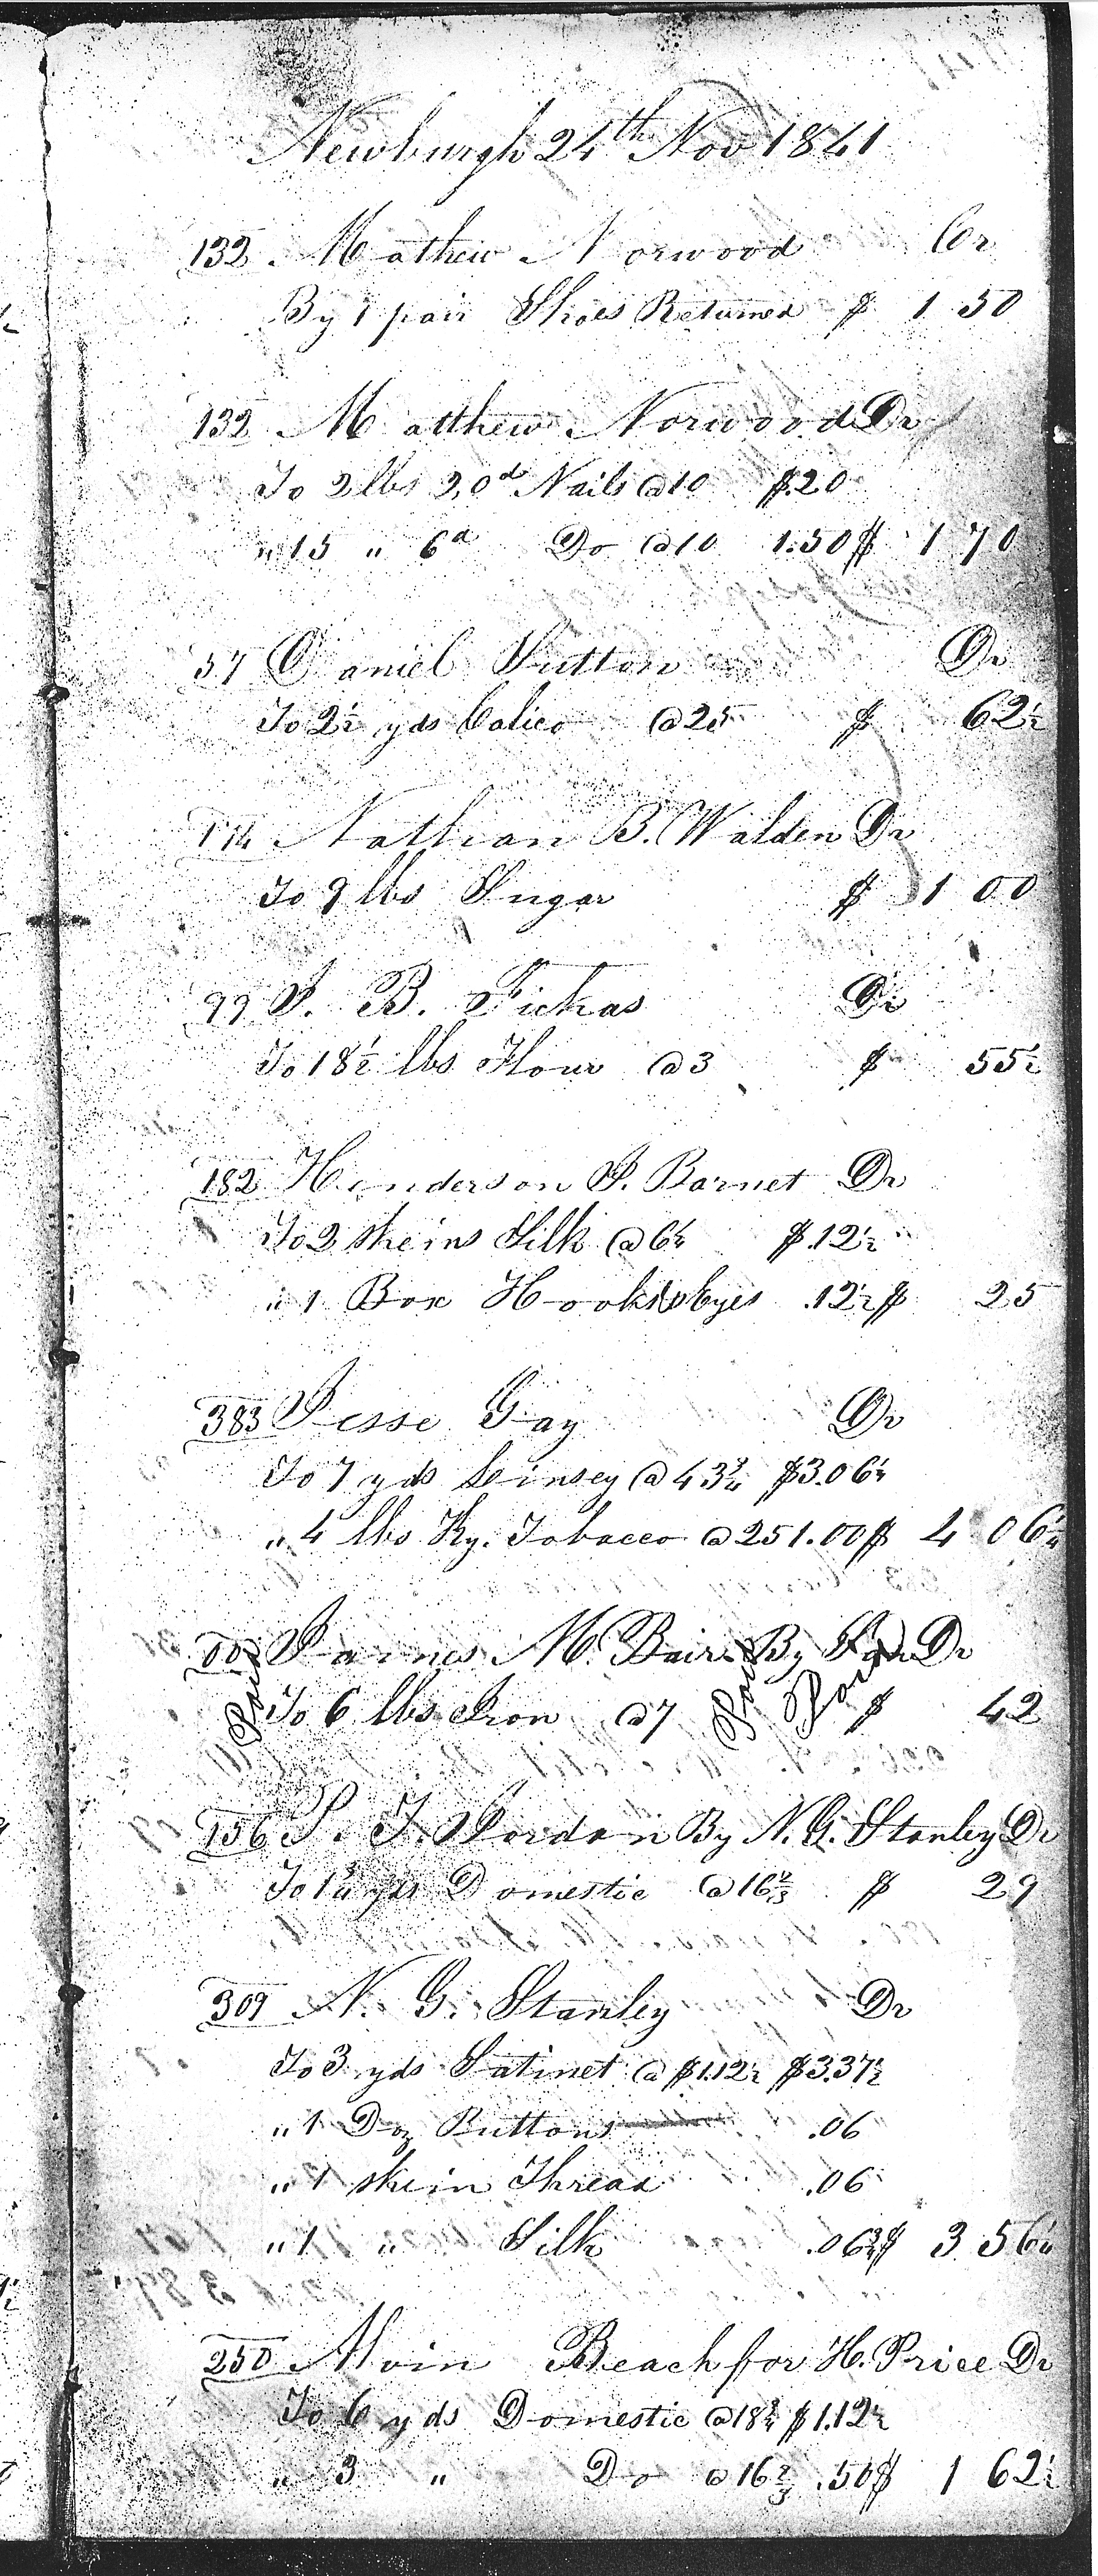 Newburgh 24th Nov 1841
132 Mathew Norwood Cr
By 1 pair Shoes Returned $ 1 50
132 Matthew Norwood Dr
To 2 lbs 20d Nails @10 $.20
" 15 " 6d Do @10 1.50 $ 1 70
37 Daniel Sutton Dr
To 2½ yds Calico @25 $ 62½
174 Nathan B. Walden Dr
To 9 lbs Sugar $ 1 00
99 J. B. Fickas Dr
To 18½ lbs Flour @3 $ 55½
182 Henderson J. Barnet Dr
To 2 skeins Silk @6¼ $.12½
" 1 Box Hooks & Eyes .12½ $ 25
383 Jesse Gay Dr
To 7 yds Linsey @43¾ $3.06¼
" 4 lbs Ky. Tobacco @25 1.00 $ 4 06¼
James M. Bair By Son Dr
To 6 lbs Iron @7 $ 42
Paid Paid Paid
156 S. T. Jordon By N. G. Stanley Dr
To 1¾ yds Domestic @16⅔ $ 29
309 N. G. Stanley Dr
To 3 yds Satinet @ $1.12½ $3.37½
" 1 Doz Buttons .06
" 1 skein Thread .06
" 1 " Silk .06¾ $ 3 56¼
250 Alvin Beach for H. Price Dr
To 6 yds Domestic @18¾ $1.12½
" 3 " Do @16⅔ .50 $ 1 62½